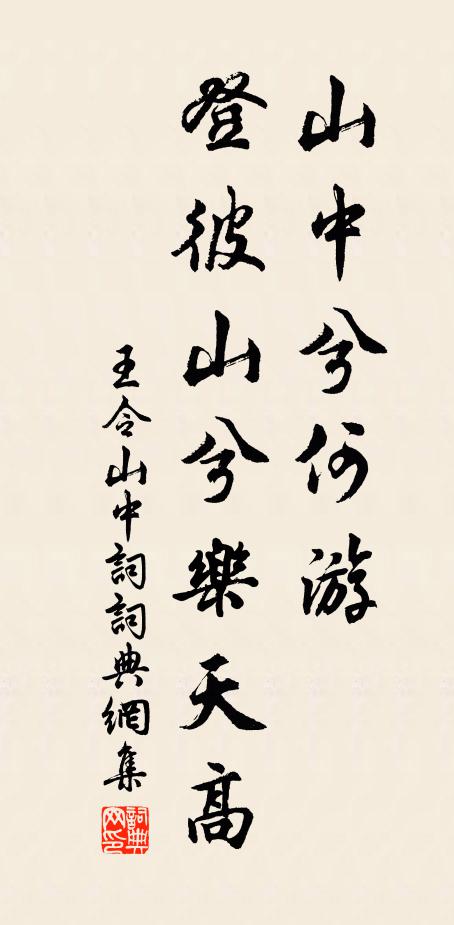 山中兮何游
登彼山兮樂天高
王令山中詞詞典網集
詞典网印